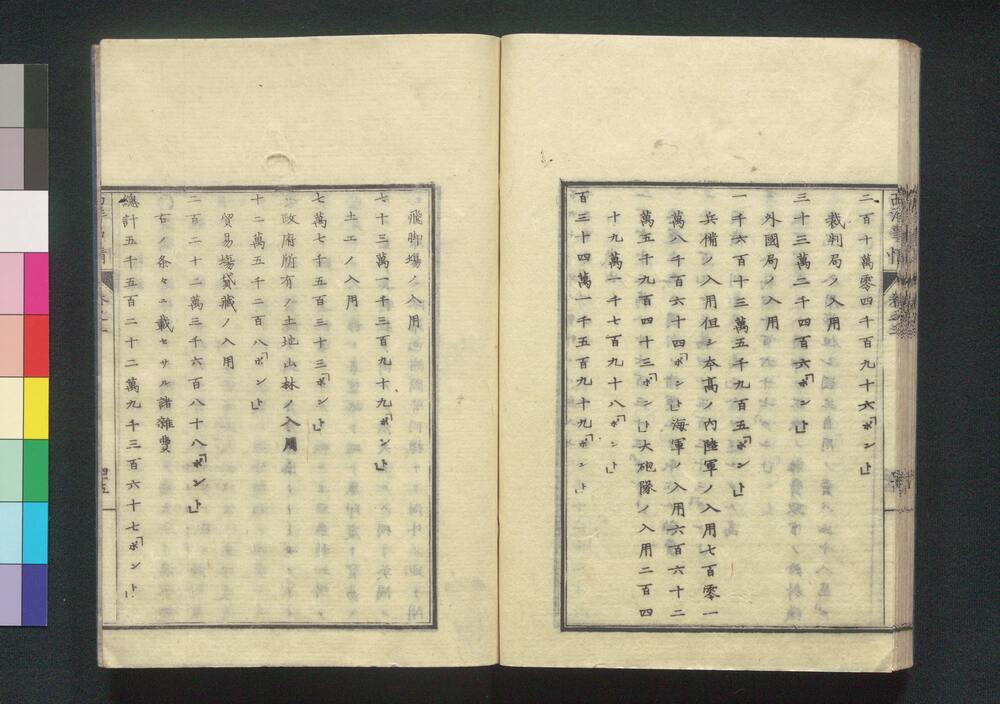 二百十萬零四千百九十六「ポンド」
裁判局ノ入用
三十三萬二千四百六「ポンド」
外國局ノ入用
一千六百十三萬五千九百五「ポンド」
兵備ノ入用但シ本高ノ內陸軍ノ入用七百零一
萬八千百六十四「ポンド」海軍ノ入用六百六十二
萬五千九百四十三「ポンド」大砲隊ノ入用二百四
十九萬一千七百九十八「ポンド」
百三十四萬一千五百九十九「ポンド」
飛脚塲ノ入用
七十三萬一千三百九十九「ポンド」
土工ノ入用
七萬七千五百三十三「ポンド」
政府所有ノ土地山林ノ入用
十二萬五千二百八「ポンド」
貿易塲貸藏ノ入用
二百二十二萬三千六百八十八「ポンド」
右ノ条々ニ載セサル諸雜費
總計五千五百二十二萬九千三百六十七「ポンド」